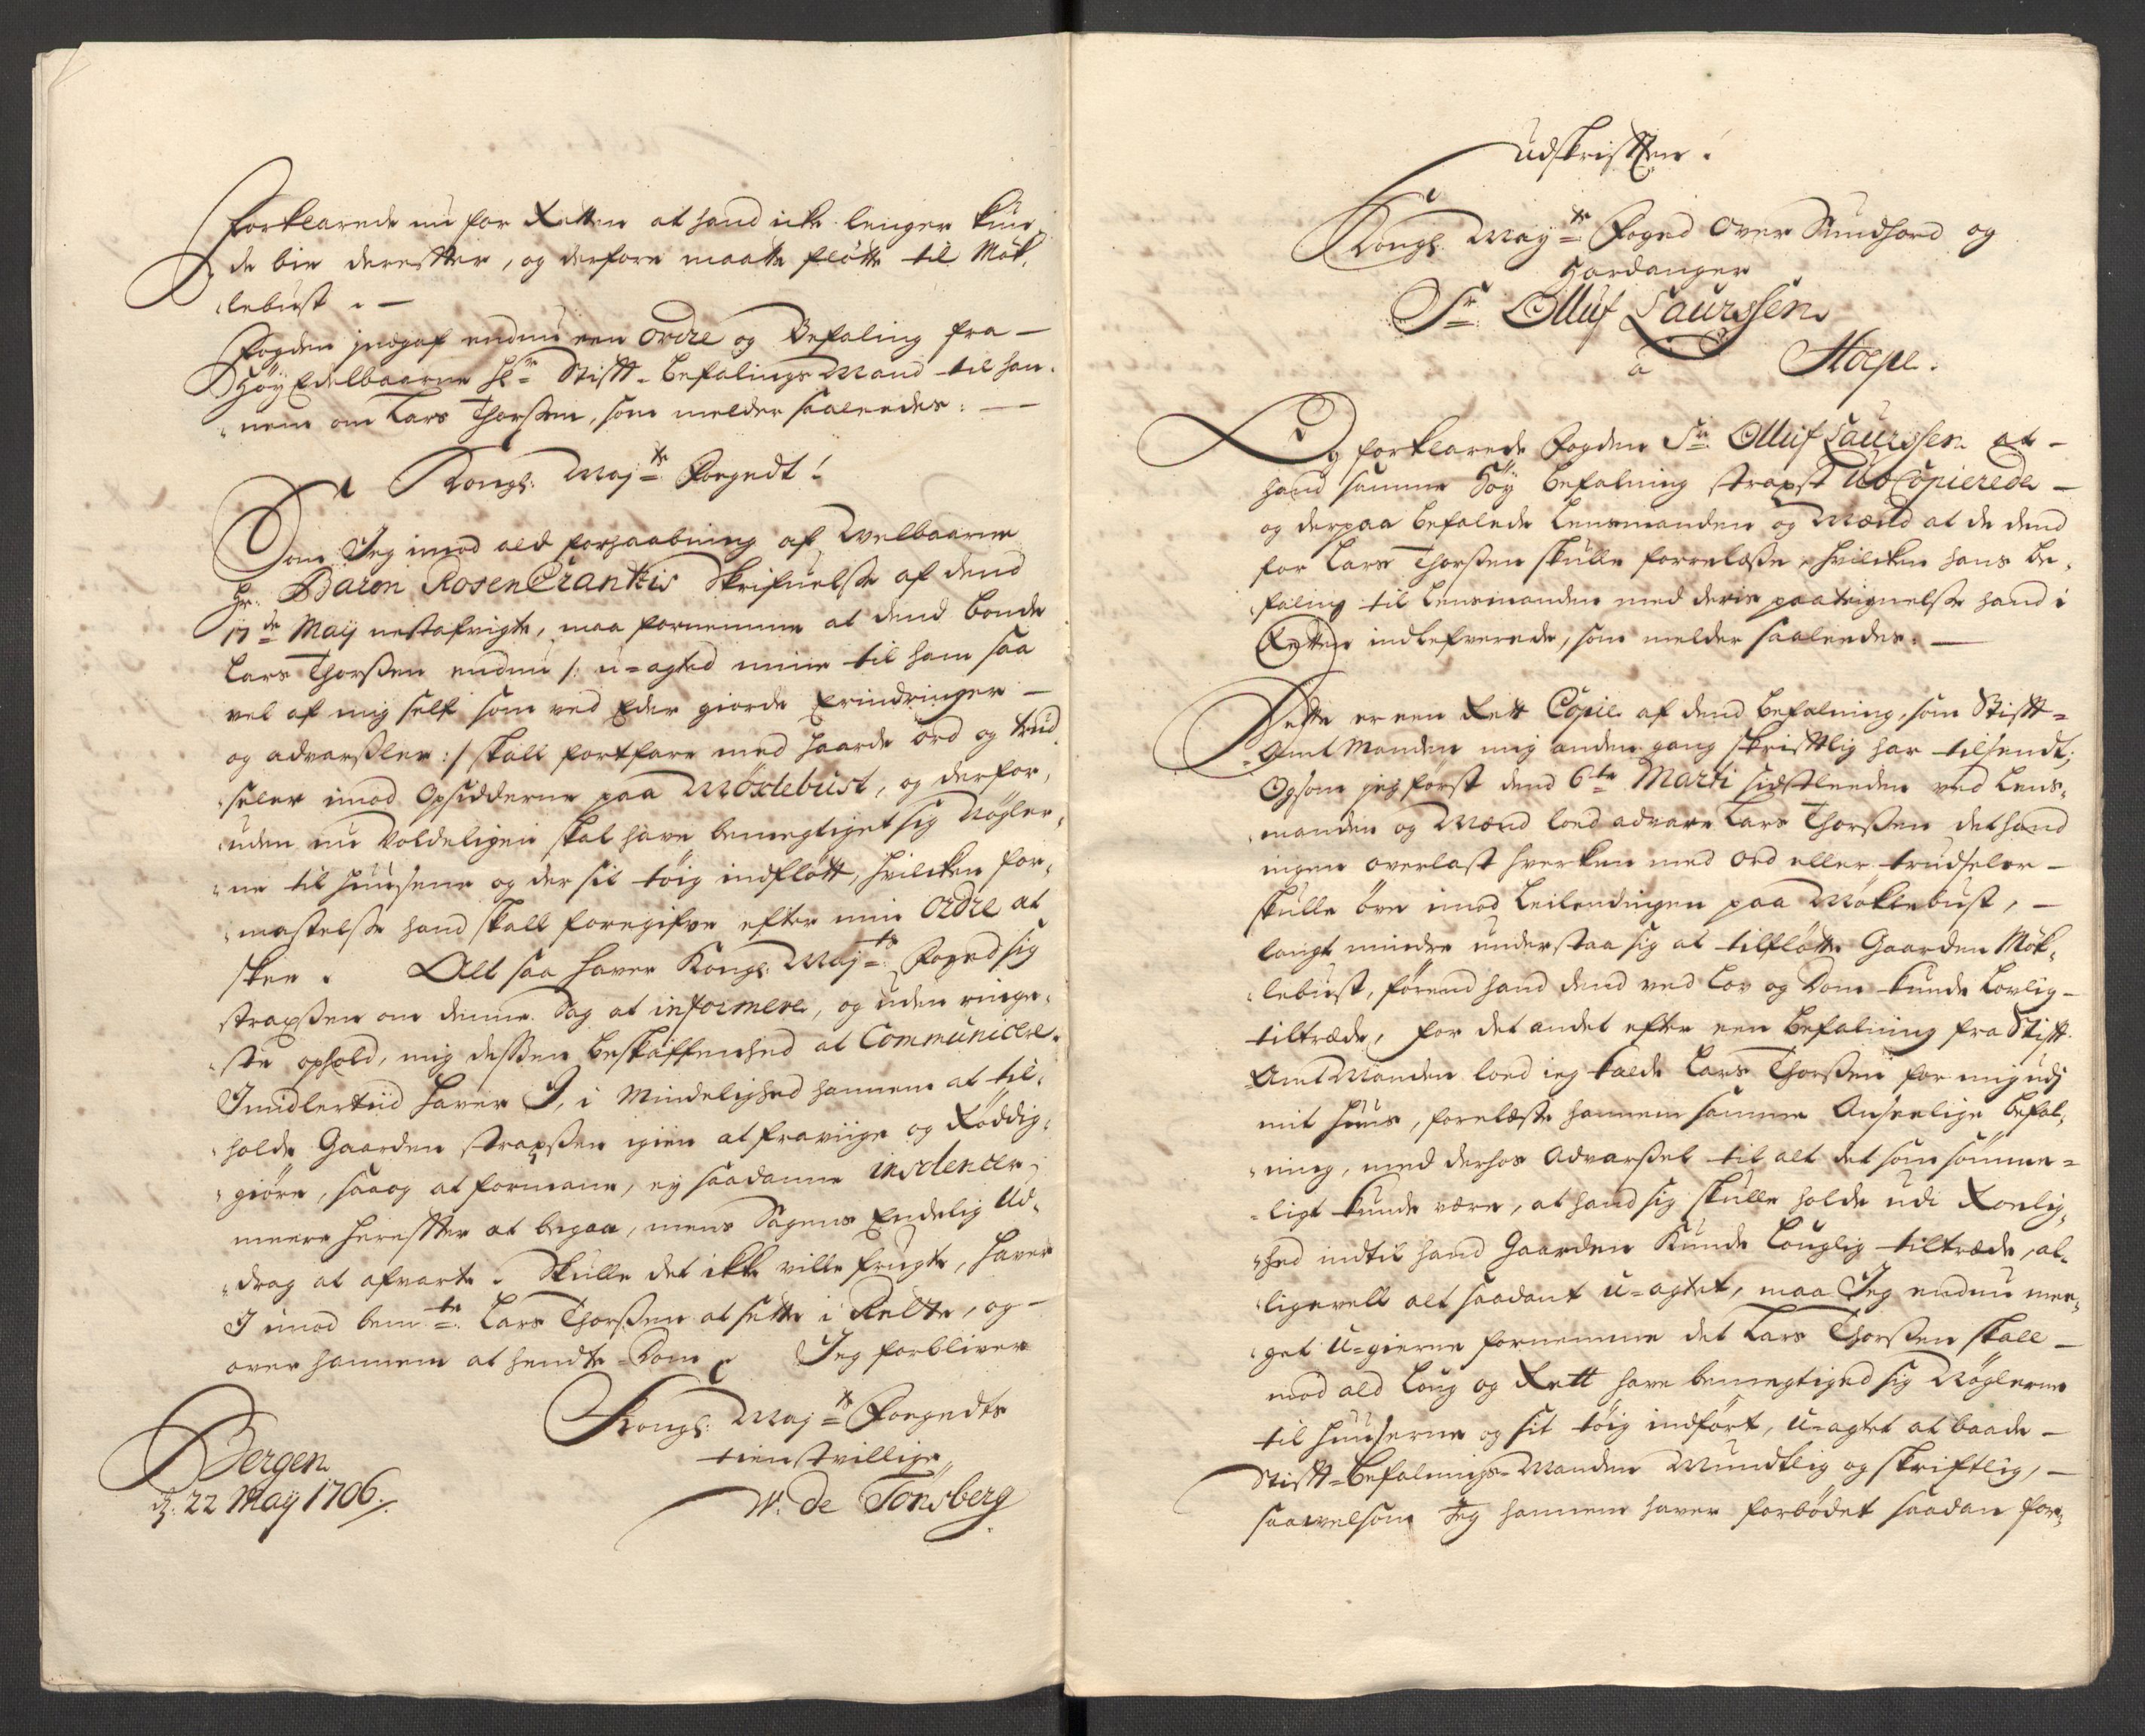 forklarede nu for Retten at hand icke lenger kun¬
de bie derefter, og derfore maatte fløtte til Møk¬
lebust. –
Fogden indgaf endnu een ordre og Befaling fra –
Høy Edelbaarne Hr. Stift-befalings Mand til han¬
nem om Lars Thorßen, som melder saaleedes: –
Kongl: Maj:ts Foegedt!
Som Jeg imod ald forhaabning af Welbaarne
Hr. Baron RosenCrantzis Skrifuelße af dend
17de Maij nestafvigte, maa fornemme at dend bonde
Lars Thorßen endnu /: u-agted mine til ham saa
vel af mig self som ved Eder giorde Erindringer –
og advarßler :/ skall fortfare med haarde ord og trud¬
seler imod Opsidderne paa Møxlebust, og derfor¬
uden nu Voldeligen skal have bemegtiget sig Nøgler¬
ne til Huusene og der sit tøig indfløtt, hvilcken for¬
mastelße hand skall foregifve efter min Ordre at
skee. Alt saa haver Kongl: Maj:ts Foged sig
straxßen om denne Sag at informere, og uden ringe¬
ste ophold, mig deßen beskaffenhed at Communicere.
Imidlertiid haver I, i Mindelighed hannem at til¬
holde Gaarden straxßen igien at fraviige og Røddig¬
giøre, saa og at formane, ej saadanne insolencer
meere herefter at begaa, mens Sagens Endelig Ud¬
drag at afvarte. Skulle det ikke ville frugte, haver
I imod bem:te Lars Thorßen at sette i Rette, og –
over hannem at hendte Dom. Jeg forbliver
Kongl: Maj:ts Foegedts
tienstvillige
W. de Tonsberg
Bergen
d. 22 Maij 1706.
Udskriften.
Kongl. Maij:ts Foged Over Sundhord og
Hardanger
Sr. Olluf Laurssen
a Stoepe.
Og forklarede Fogden Sr. Olluf Laurssen at –
hand samme Høy befalning straxst UdCopierede –
og derpaa befalede Lensmanden og Mænd at de dend
for Lars Thorßen skulle forrelæse, hvilcken hans be¬
faling til Lensmanden med deris paateignelße hand i
Retten indlefverede, som melder saaleedes. –
Dette er een Rett Copie af dend befalning, som Stift-
Amt Manden mig anden gang skriftlig har tilsendt;
Og som jeg først dend 6te Marti sidstleeden ved Lens¬
manden og Mænd loed advare Lars Thorßen det hand
ingen overlast hverken med ord eller trudseler –
skulle øve imod Leilendingen paa Møklebust, –
langt mindre understaa sig at tilfløtte Gaarden Møk¬
lebust, førend hand dend ved Lov og Dom kunde Lovlig –
tiltræde, for det andet efter een befalning fra Stift
AmtManden loed ieg kalde Lars Thorßen for mig udj
mit Huus, forelæste hannem samme Anseelige befal¬
ning, med derhos Advarßel til alt det som sømme-
ligt kunde være, at hand sig skulle holde udi Roelig¬
hed indtil hand Gaarden Kunde Louglig tiltræde, al¬
ligevell alt saadant u-agtet, maa Jeg endnu mee¬
get u-gierne fornemme det Lars Thorßen skall –
mod ald Loug og Rett have bemegtiged sig Nøglerne
til Huuserne og sit tøig indført, u-agtet at baade –
Stift-befalnings-Manden Mundtlig og skriftlig, –
saavelsom Jeg hannem haver forbødet saadan for¬